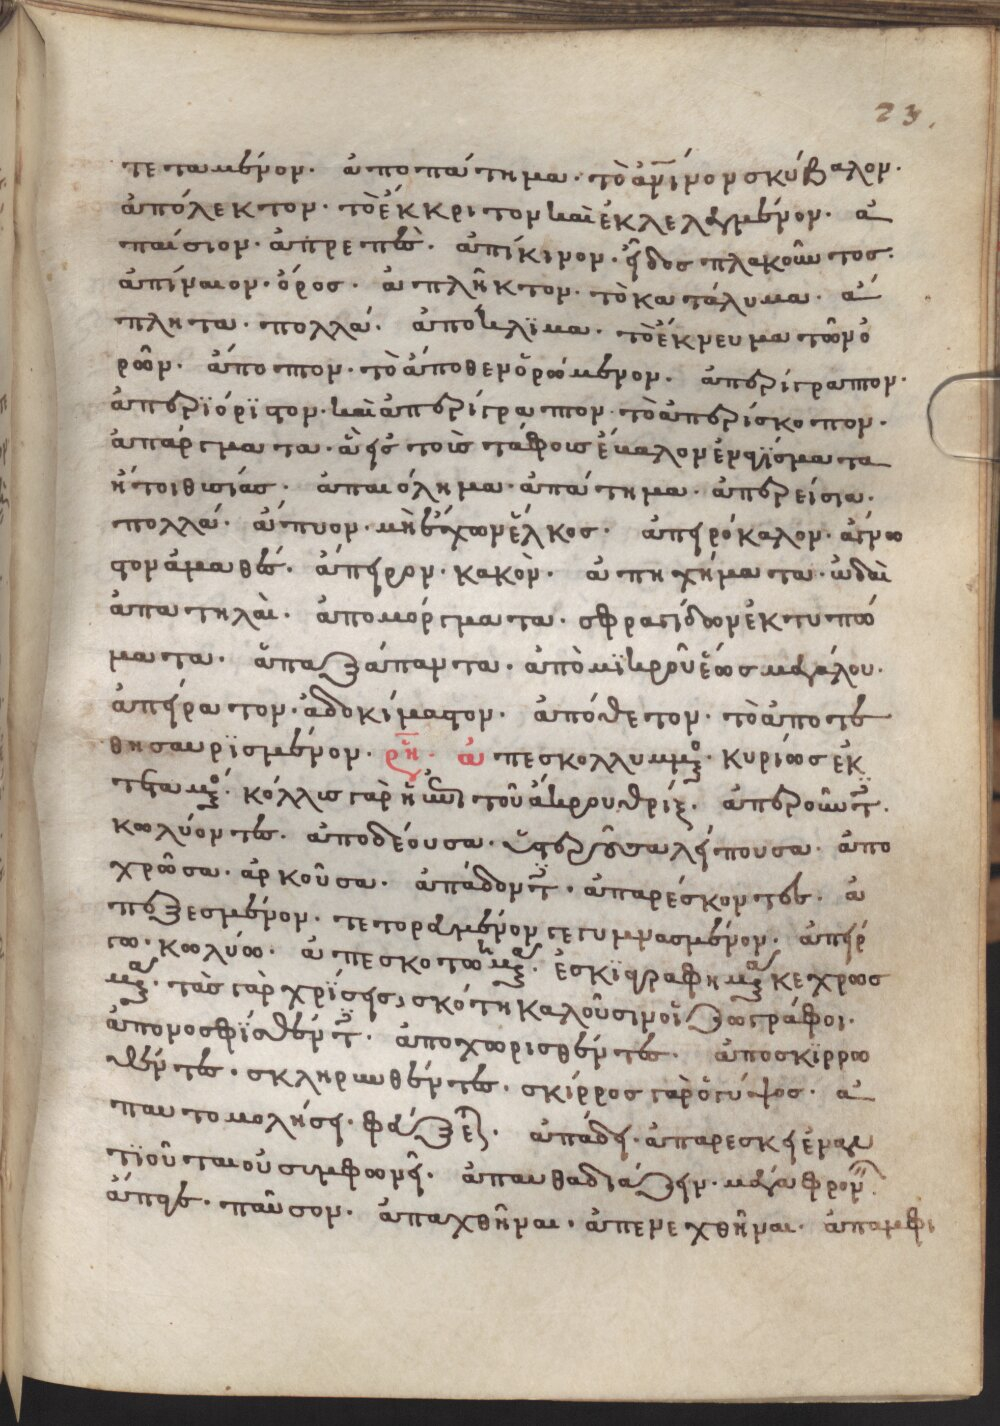 23.
τεταμένον. ἀποπάτημα. τὸ ἀνινον σκύβαλον.
ἀπόλεκτον. τὸ ἔκκριτον καὶ ἐκλελεγμένον. ἀ
παίσιον. ἀπρεπές. ἀπίκινον. εἶδος πλακοῦντος.
ἀπίναιον. ὄρος. ἄπληκτον. τὸ κατάλυμα. ἄ
πλητα. πολλά. ἀπόκλϊμα. τὸ ἔκνευμα τῶν ὀ
ρῶν. ἄποπτον. τὸ ἄποθεν ὁρώμενον. ἀπερίγραπτον.
ἀπεριόριστον. καὶ ἀπερίγραπτον τὸ ἀπερίσκοπτον.
ἀπάργματα. ἃ εἰς τοῖς τάφοις ἐκάλον ἐναγίσματα
ἤτοι θυσίας. ἀπαιόλημα. ἀπάτημα. ἀπερείσια.
πολλά. ἄπυον. μὴ ἔχων ἕλκος. ἀπειρόκαλον. ἄγνω
στον ἀμαθές. ἄπειρον. κακὸν. ἀπηχήματα. ὠδαὶ
ἀπατηλαὶ. ἀπομόργματα. σφραγίδων ἐκτυπώ
ματα. ἅπαξάπαντα. ἀπὸ μϊκροῦ ἕως μεγάλου.
ἀπείρατον. ἀδοκίμαστον. ἀπόθετον. τὸ ἀποτε
θησαυρϊσμένον. ρημ. ἀπεσκολλυμμένος. κυρίως ἐκ
τετιλμένος. κόλλις γὰρ ἡ ἐπὶ τοῦ ἄκρου θρίξ. ἀπεροῦντες.
κωλύοντες. ἀποδέουσα. ὑστεροῦσα λείπουσα. ἀπο
χρῶσα. ἀρκοῦσα. ἀπάδοντες. ἀπαρέσκοντες. ἀ
πεξεσμένον. τετορευμένον γεγυμνασμένον. ἀπείρ
γω. κωλύω. ἀπεσκοτωμένας. ἐσκιαγραφημένας κεχρωσ
μένας. τὰς γὰρ χρϊσεις, σκότη καλοῦσιν οἱ ζωγράφοι.
ἀπονοσφϊσθέντες. ἀποχωρισθέντες. ἀποσκιρρω
θέντες. σκληρωθέντες. σκίρρος γὰρ ὁ γύψος. ἀ
παυτομολήσει. φεύξεται. ἀπάδει. ἀπαρέσκει ἐναν
τϊοῦται οὐ συμφωνεῖ. ἀπαυθαδιάζειν. μεγαφρονεῖν.
ἄπαγε. παῦσον. ἀπαχθῆναι. ἀπενεχθῆναι. ἀπαμφι